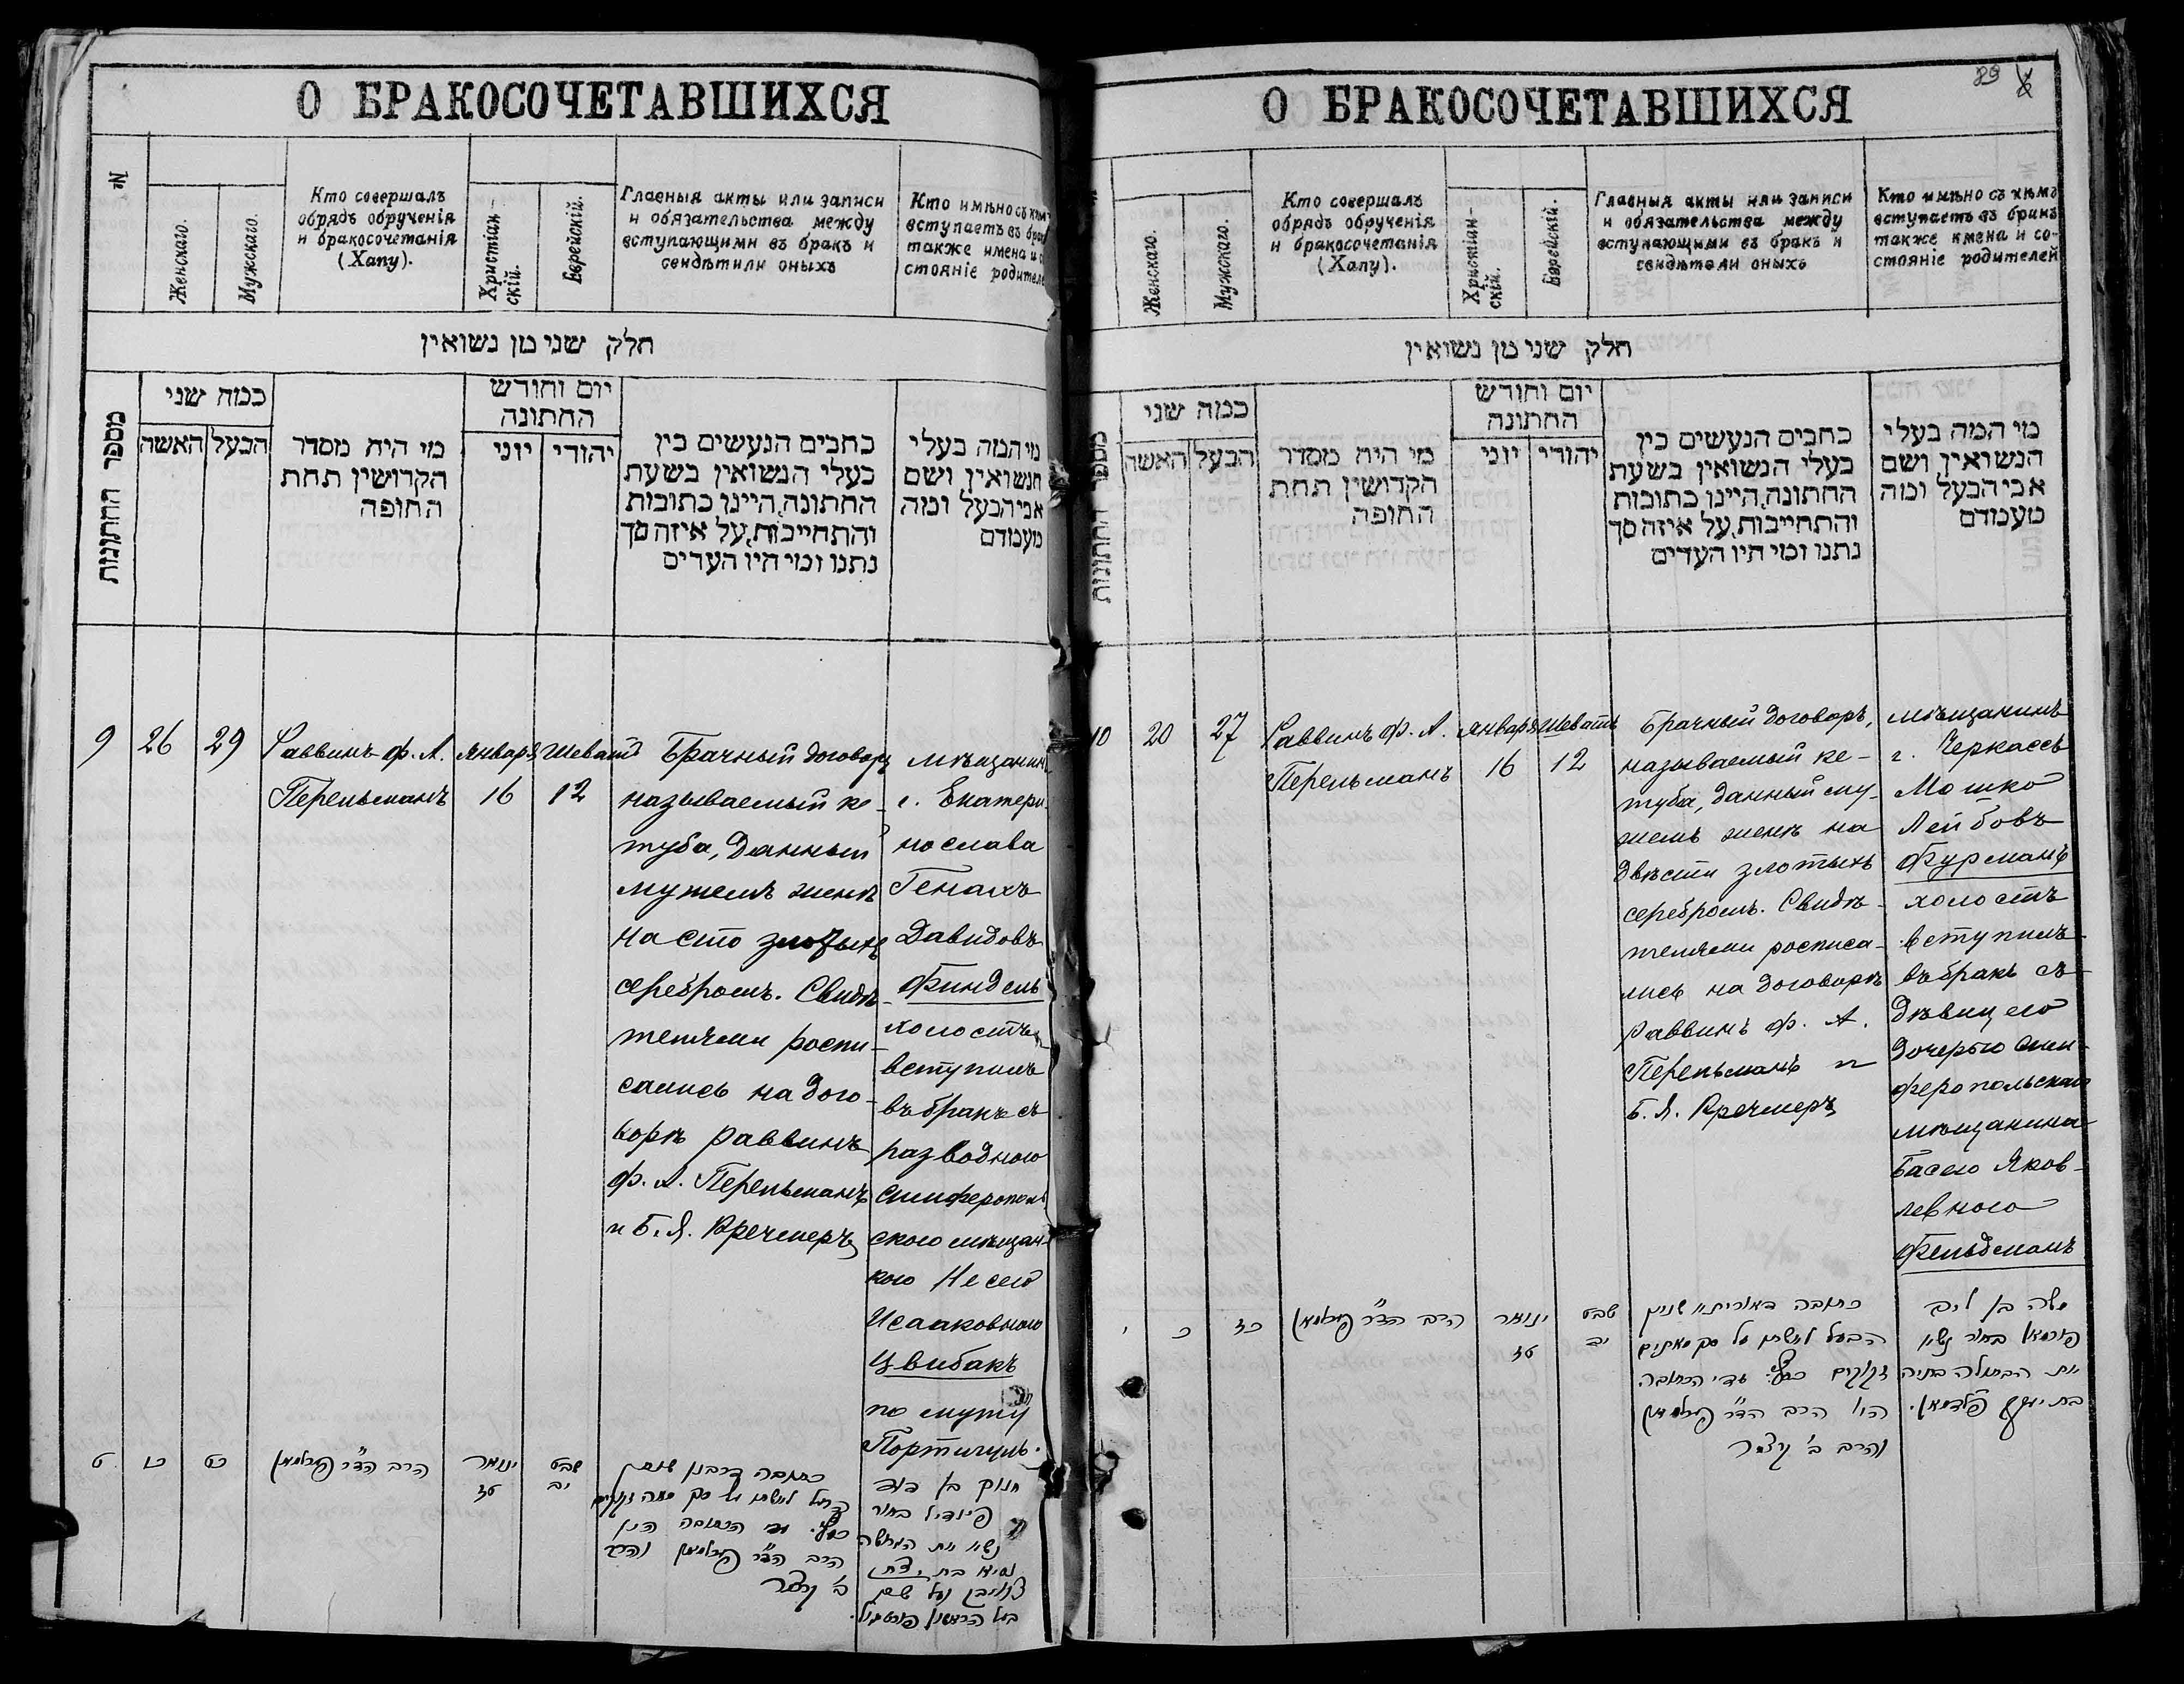 О БРАКОСОЧЕТАВШИХСЯ
№
Женскаго.
Мужскаго.
Кто совершалъ
обрядъ обрученія
и бракосочетанія
(Хапу).
Христіан-
скій.
Еврейскій.
Главныя акты или записи
и обязательства между
вступающими въ бракъ и
свидѣтили оныхъ
Кто имѣно съ кѣмъ
вступаетъ въ бракъ
также имена и со
стояніе родителе
חלק שני מן נשואין
מספר החתונות
כמה שני
האשה
הבעל
מי היה מסדר
הקדושין תחת
החופה
יום וחודש
החתונה
יוני
יהודי
כתבים הנעשים בין
בעלי הנשואין בשעת
החתונה, היינו כתובות
והתחייבות, על איזה סך
נתנו ומי היו העדים
מי המה בעלי
הנשואין ושם
אבי הבעל ומה
מעמדם
9
26
29
Раввинъ Ф. А.
Перельманъ
Января
16
Шеватъ
12
Брачный договоръ
называемый ке-
туба, данный
мужемъ женѣ
на сто злотыхъ
серебромъ. Свидѣ-
телями роспи-
сались на дого-
ворѣ раввинъ
Ф. А. Перельманъ
и Б. Я. Кречмеръ
мѣщанинъ
г. Екатери-
нослава
Генахъ
Давидовъ
Финдель
холостъ
вступилъ
въ бракъ съ
разводною
симферополь
скою мѣщан-
кою Несею
Исааковною
Цвибакъ
по мужу
Портигуль.
ט
כו
כט
הרב הד"ר פערלמאן
ינואר
טז
שבט
יב
חנוך בן דוד
О БРАКОСОЧЕТАВШИХСЯ
89
Женскаго.
Мужскаго.
Кто совершалъ
обрядъ обрученія
и бракосочетанія
(Хапу).
Христіан-
скій.
Еврейскій.
Главныя акты или записи
и обязательства между
вступающими въ бракъ и
свидѣтели оныхъ
Кто имѣно съ кѣмъ
вступаетъ въ бракъ
также имена и со-
стояніе родителей
חלק שני מן נשואין
מספר החתונות
כמה שני
האשה
הבעל
מי היה מסדר
הקדושין תחת
החופה
יום וחודש
החתונה
יוני
יהודי
כתבים הנעשים בין
בעלי הנשואין בשעת
החתונה, היינו כתובות
והתחייבות, על איזה סך
נתנו ומי היו העדים
מי המה בעלי
הנשואין ושם
אבי הבעל ומה
מעמדם
10
20
27
Раввинъ Ф. А.
Перельманъ
Января
16
Шеватъ
12
Брачный договоръ,
называемый ке-
туба, данный му-
жемъ женѣ на
двѣсти злотыхъ
серебромъ. Свидѣ-
телями росписа-
лись на договорѣ
раввинъ Ф. А.
Перельманъ и
Б. Я. Кречмеръ
мѣщанинъ
г. Черкассъ
Мошко
Лейбовъ
Фурманъ
холостъ
вступилъ
въ бракъ съ
дѣвицею
дочерью сим-
феропольскаго
мѣщанина
Басею Яков-
левною
Фельдманъ
י
כ
כז
הרב הד"ר פערלמאן
ינואר
טז
שבט
יב
הבעל לאשתו על סך מאתים
זקוקים כסף. עדי הכתובה
היו הרב הד"ר פערלמאן
והרב ב' קרצמר
משה בן ליב
פורמאן בחור נשא
את הבתולה בתיה
בת יעקב פלדמאן.